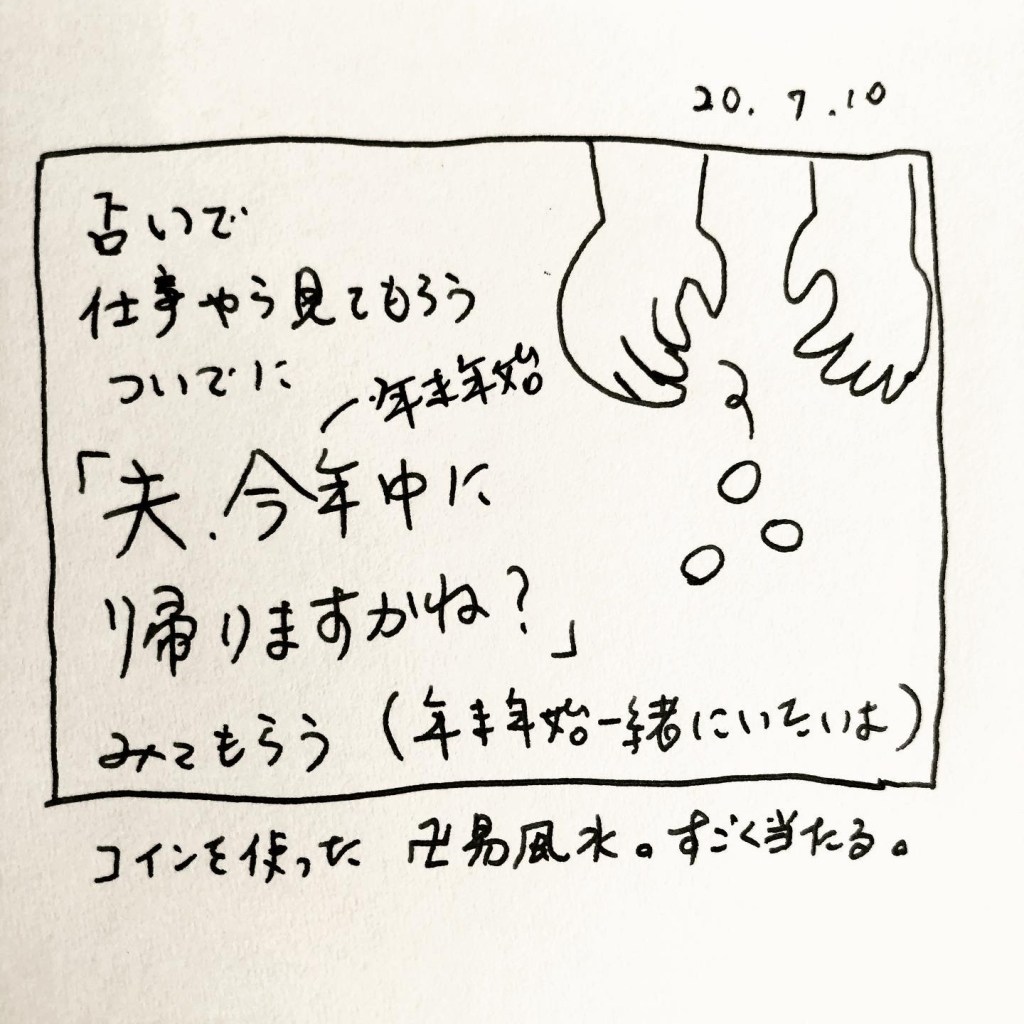 20.7.10
占いで
仕事やら見てもらう
ついでに
年末年始
「夫、今年中に
帰りますかね？」
みてもらう（年末年始一緒にいたいよ）
コインを使った 卍易風水。すごく当たる。